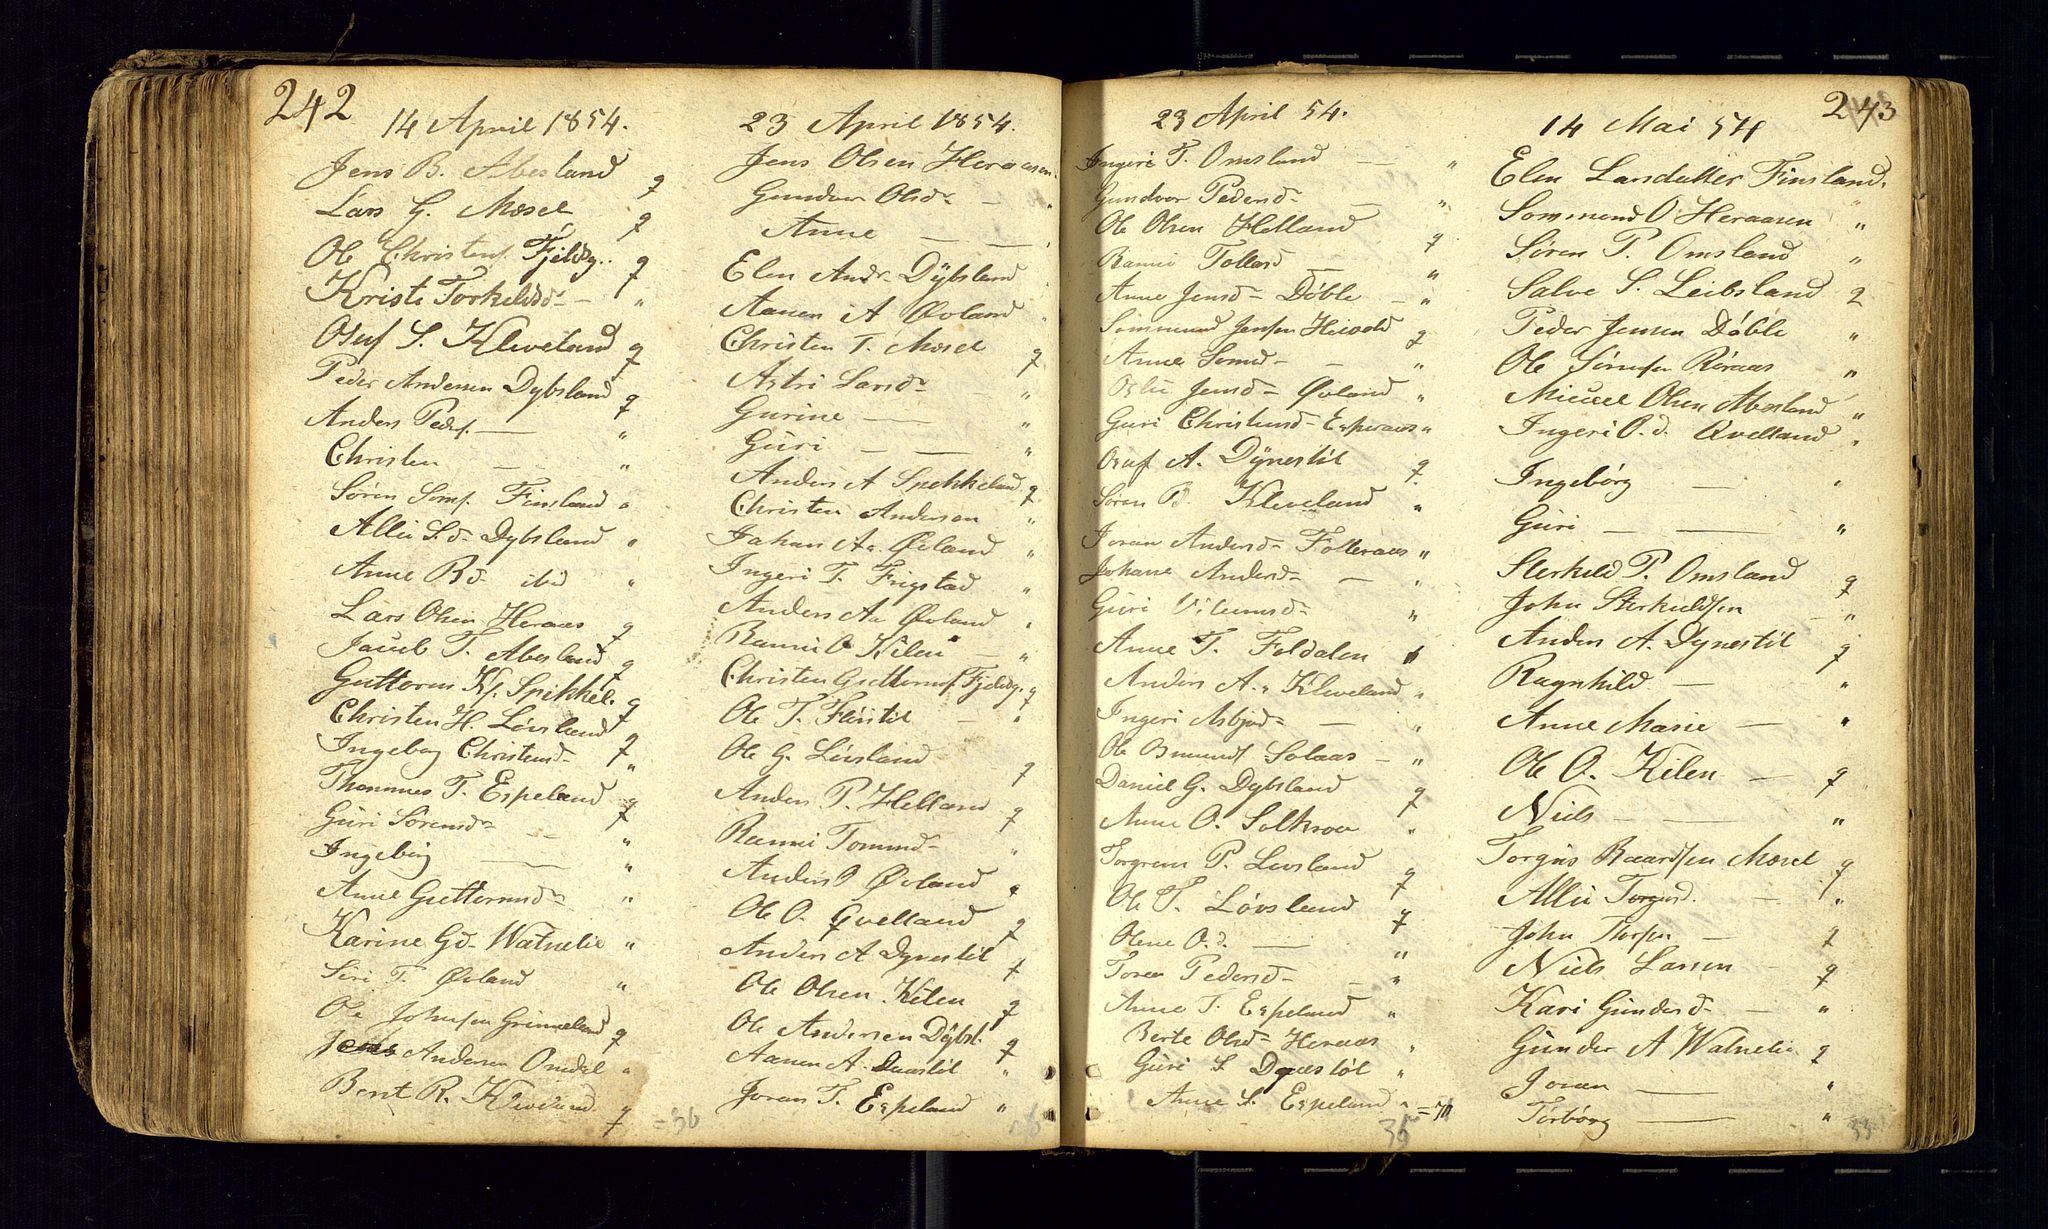 242
14 April 1854.
Jens B. Abesland q
Lars G. Mosel q
Ole Christens. Fjeldsg. q
Kristi Torkelsd - "
Osuf S. Kleveland q
Peder Andersen Dybsland q
Anders Peders. — "
Christen — "
Søren Soms. Finsland "
Alli S. d - Dybsland "
Anne Bd. ibid "
Lars Olsen Heraas q
Jacob T. Abesland q
Guttorm K. Spikkel. q
Christen H. Løvsland q
Ingebog Christensd - "
Thommes T. Espeland q
Guri Sørensd - — "
Ingeborg — "
Anne Guttormsd - "
Karine Gd - Watnelie "
Siri T. Øvland "
Ole Johnsen Grimeland q
Jens Andersen Omdal "
Bent R. Kleveland q = 36
23 April 1854.
Jens Olsen Heraasen
Gundvor Olsd - — "
Anne — — "
Elen Andr - Dybsland
Aanen A Øvland
Christen T. Mosel q
Astri Larsd - "
Gurine — "
Guri — — "
Anders A Spekkeland q
Christen Andersen "
Johan Aa. Øvland "
Ingeri T. Frigstad "
Anders Aa Øvland "
Ranni O Kilen — "
Christen Guttorms. Fjeldsg. q
Ole T. Fløistøl — "
Ole G. Løvsland q
Anders P. Helland q
Ranni Tommd - "
Anders P Øvland q
Ole O. Qvelland q
Anders A Dynestøl q
Ole Olsen Kilen q
Ole Andersen Dybsl. q
Aanen A. Duestøl "
Joran T. Espeland "
23 April 54.
Ingeri T. Omsland — "
Gundvor Pedersd - "
Ole Olsen Helland q
Ranni Tollasd — "
Anne Jensd - Døble — "
Sømmund Jensen Hisvold q
Anne Somd - — "
Oslu Jensd - Øvland "
Guri Christensd - Esperaas "
Osuf A. Dynestøl q
Søren Pd Kleveland "
Joran Andersd - Folleraas "
Johane Andersd - — "
Guri Vilumsd - "
Anne T. Foldalen "
Anders A. Kleveland "
Ingeri Asbjød - — "
Ole Osmunds Solaas — "
Daniel G. Dybsland q
Anne O. Solknov "
Torgrim P. Løvsland q
Ole T. Løvsland q
Olene O. d. — "
Toran Pedersd - — "
Anne T. Espeland "
Berte Olsd - Heraas "
Guri S Dynestøl "
Anne S. Espeland " = 71
36
243
14 Mai 54
Elen Larsdatter Finsland.
Sommund O Heraasen "
Søren P. Omsland "
Salve S. Leibsland q
Peder Jensen Døble "
Ole Sørensen Røraas "
Michel Olsen Abesland "
Ingeri O. d. Qvelland "
Ingebørg — "
Guri — — "
Sterkild P. Omsland q
John Sterkildsen — "
Anders A. Dynestøl q
Ragnhild — "
Anne Marie — "
Ole O. Kilen — q
Niels — — "
Torgius Baardsen Mosel q
Alli Torgusd. — "
John Thorsen — q
Niels Larsen - q
Kari Gundersd - — "
Gunder A Watnelie q
Joran — "
Torbørg — "
33